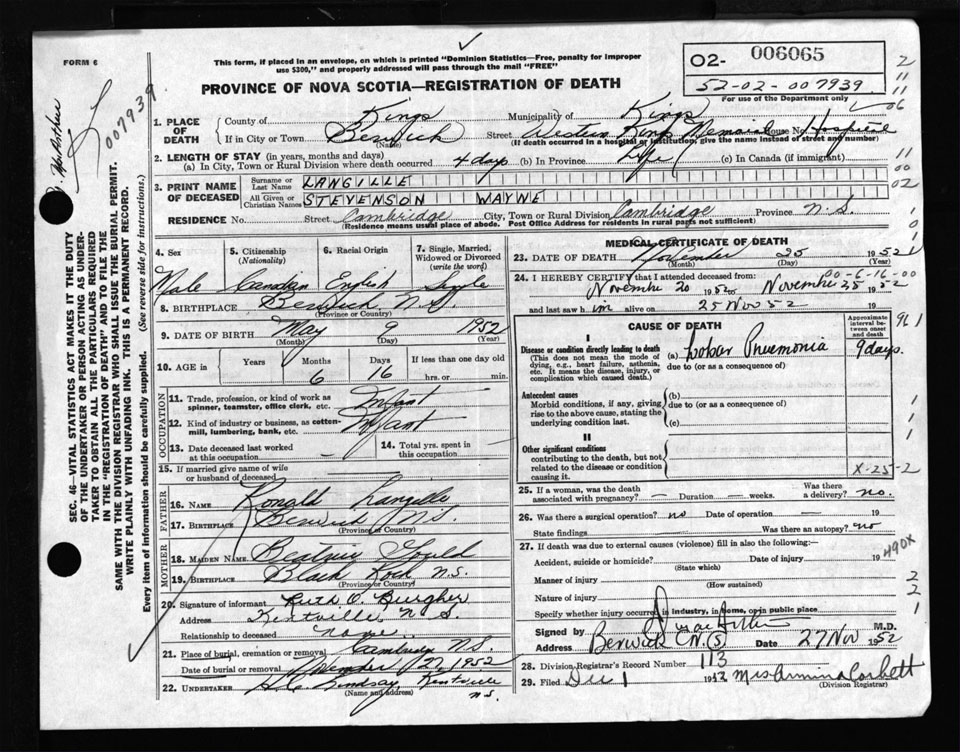 FORM 6
This form, if placed in an envelope, on which is printed "Dominion Statistics—Free, penalty for improper
use $300," and properly addressed will pass through the mail "FREE"
PROVINCE OF NOVA SCOTIA—REGISTRATION OF DEATH
02- 006065
52-02-007939
For use of the Department only
007939
SEC. 46—VITAL STATISTICS ACT MAKES IT THE DUTY
OF THE UNDERTAKER OR PERSON ACTING AS UNDER-
TAKER TO OBTAIN ALL THE PARTICULARS REQUIRED
IN THE "REGISTRATION OF DEATH" AND TO FILE THE
SAME WITH THE DIVISION REGISTRAR WHO SHALL ISSUE THE BURIAL PERMIT.
WRITE PLAINLY WITH UNFADING INK. THIS IS A PERMANENT RECORD.
Every item of information should be carefully supplied. (See reverse side for instructions.)
1. PLACE OF DEATH County of Kings Municipality of Kings
If in City or Town Berwick (Name) Street Western Kings Memorial House No. Hospital
(If death occurred in a hospital or institution, give the name instead of street and number)
2. LENGTH OF STAY (in years, months and days)
(a) In City, Town or Rural Division where death occurred 4 days (b) In Province Life (c) In Canada (if immigrant)
3. PRINT NAME OF DECEASED Surname or Last Name LANGILLE
All Given or Christian Names STEVENSON WAYNE
RESIDENCE No. Street Cambridge City, Town or Rural Division Cambridge Province N.S.
(Residence means usual place of abode. Post Office Address for residents in rural parts not sufficient)
4. Sex 5. Citizenship (Nationality) 6. Racial Origin 7. Single, Married, Widowed or Divorced (write the word)
Male Canadian English Single
8. BIRTHPLACE Berwick N.S.
(Province or Country)
9. DATE OF BIRTH May 9 1952
(Month) (Day) (Year)
10. AGE in Years Months 6 Days 16 If less than one day old
hrs. or min.
OCCUPATION
11. Trade, profession, or kind of work as spinner, teamster, office clerk, etc. Infant
12. Kind of industry or business, as cotten-mill, lumbering, bank, etc. Infant
13. Date deceased last worked at this occupation — 14. Total yrs. spent in this occupation
15. If married give name of wife or husband of deceased
FATHER
16. NAME Ronald Langille
17. BIRTHPLACE Berwick N.S.
(Province or Country)
MOTHER
18. MAIDEN NAME Beatrice Gould
19. BIRTHPLACE Black Rock N.S.
(Province or Country)
20. Signature of informant Ruth O. Burgher
Address Kentville N.S.
Relationship to deceased none
21. Place of burial, cremation or removal Cambridge N.S.
Date of burial or removal November 27 1952
22. UNDERTAKER Lindsay Kentville
(Name and address) N.S.
MEDICAL CERTIFICATE OF DEATH
23. DATE OF DEATH November 25 1952
(Month) (Day) (Year)
24. I HEREBY CERTIFY that I attended deceased from 00-6-16-00
November 20 1952 to November 25 1952
and last saw h im alive on 25 Nov 52 19
CAUSE OF DEATH
Approximate interval between onset and death
I
Disease or condition directly leading to death (a) Lobar Pneumonia 9 days.
(This does not mean the mode of dying, e.g., heart failure, asthenia, etc. It means the disease, injury, or complication which caused death.)
due to (or as a consequence of)
Antecedent causes
Morbid conditions, if any, giving rise to the above cause, stating the underlying condition last.
(b)
due to (or as a consequence of)
(c)
II
Other significant conditions
contributing to the death, but not related to the disease or condition causing it.
X-25-2
25. If a woman, was the death associated with pregnancy? — Duration — weeks. Was there a delivery? no.
26. Was there a surgical operation? no Date of operation —
State findings Was there an autopsy? no
27. If death was due to external causes (violence) fill in also the following:—
Accident, suicide or homicide? Date of injury 19
(State which)
490X
Manner of injury
(How sustained)
Nature of injury
Specify whether injury occurred in industry, in home, or in public place
Signed by M.D.
Address Berwick N.S. Date 27 Nov 1952
28. Division Registrar's Record Number 113
29. Filed Dec 1 1952 Mrs Armina Corbett
(Division Registrar)